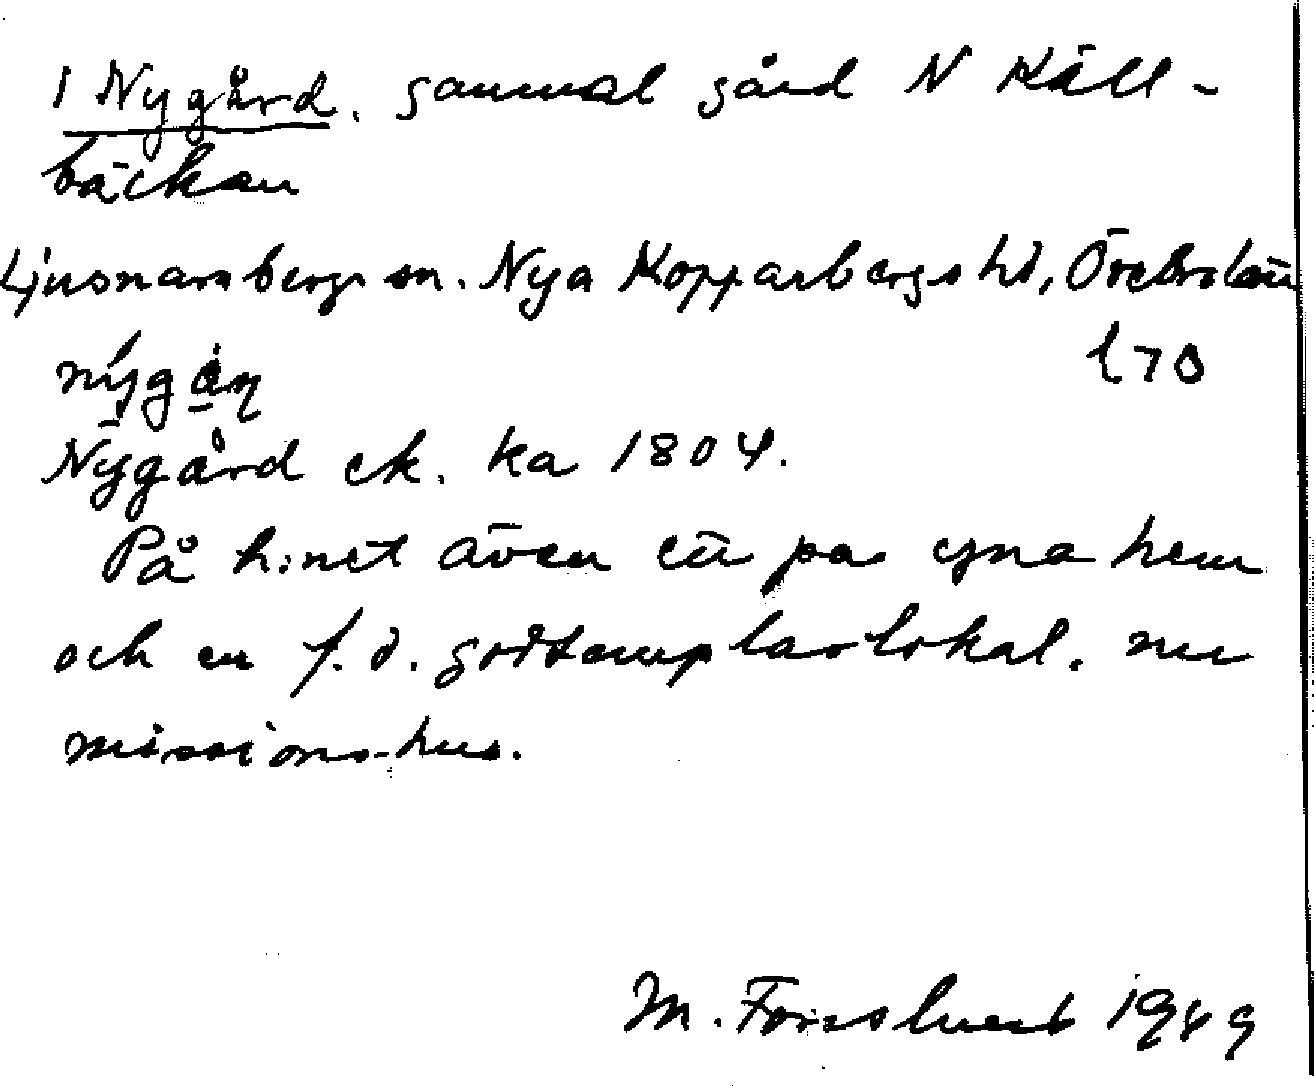 1 Nygård. gammal gård N Käll-
bäckan
Ljusnarsbergs sn. Nya Kopparbergs hd, Örebro län
l 70
Nygård ek. ka 1804.
På h:net även ett par egna hem
och en f.d. godtemplarlokal. nu
missionshus.
M. Forsslund 1949